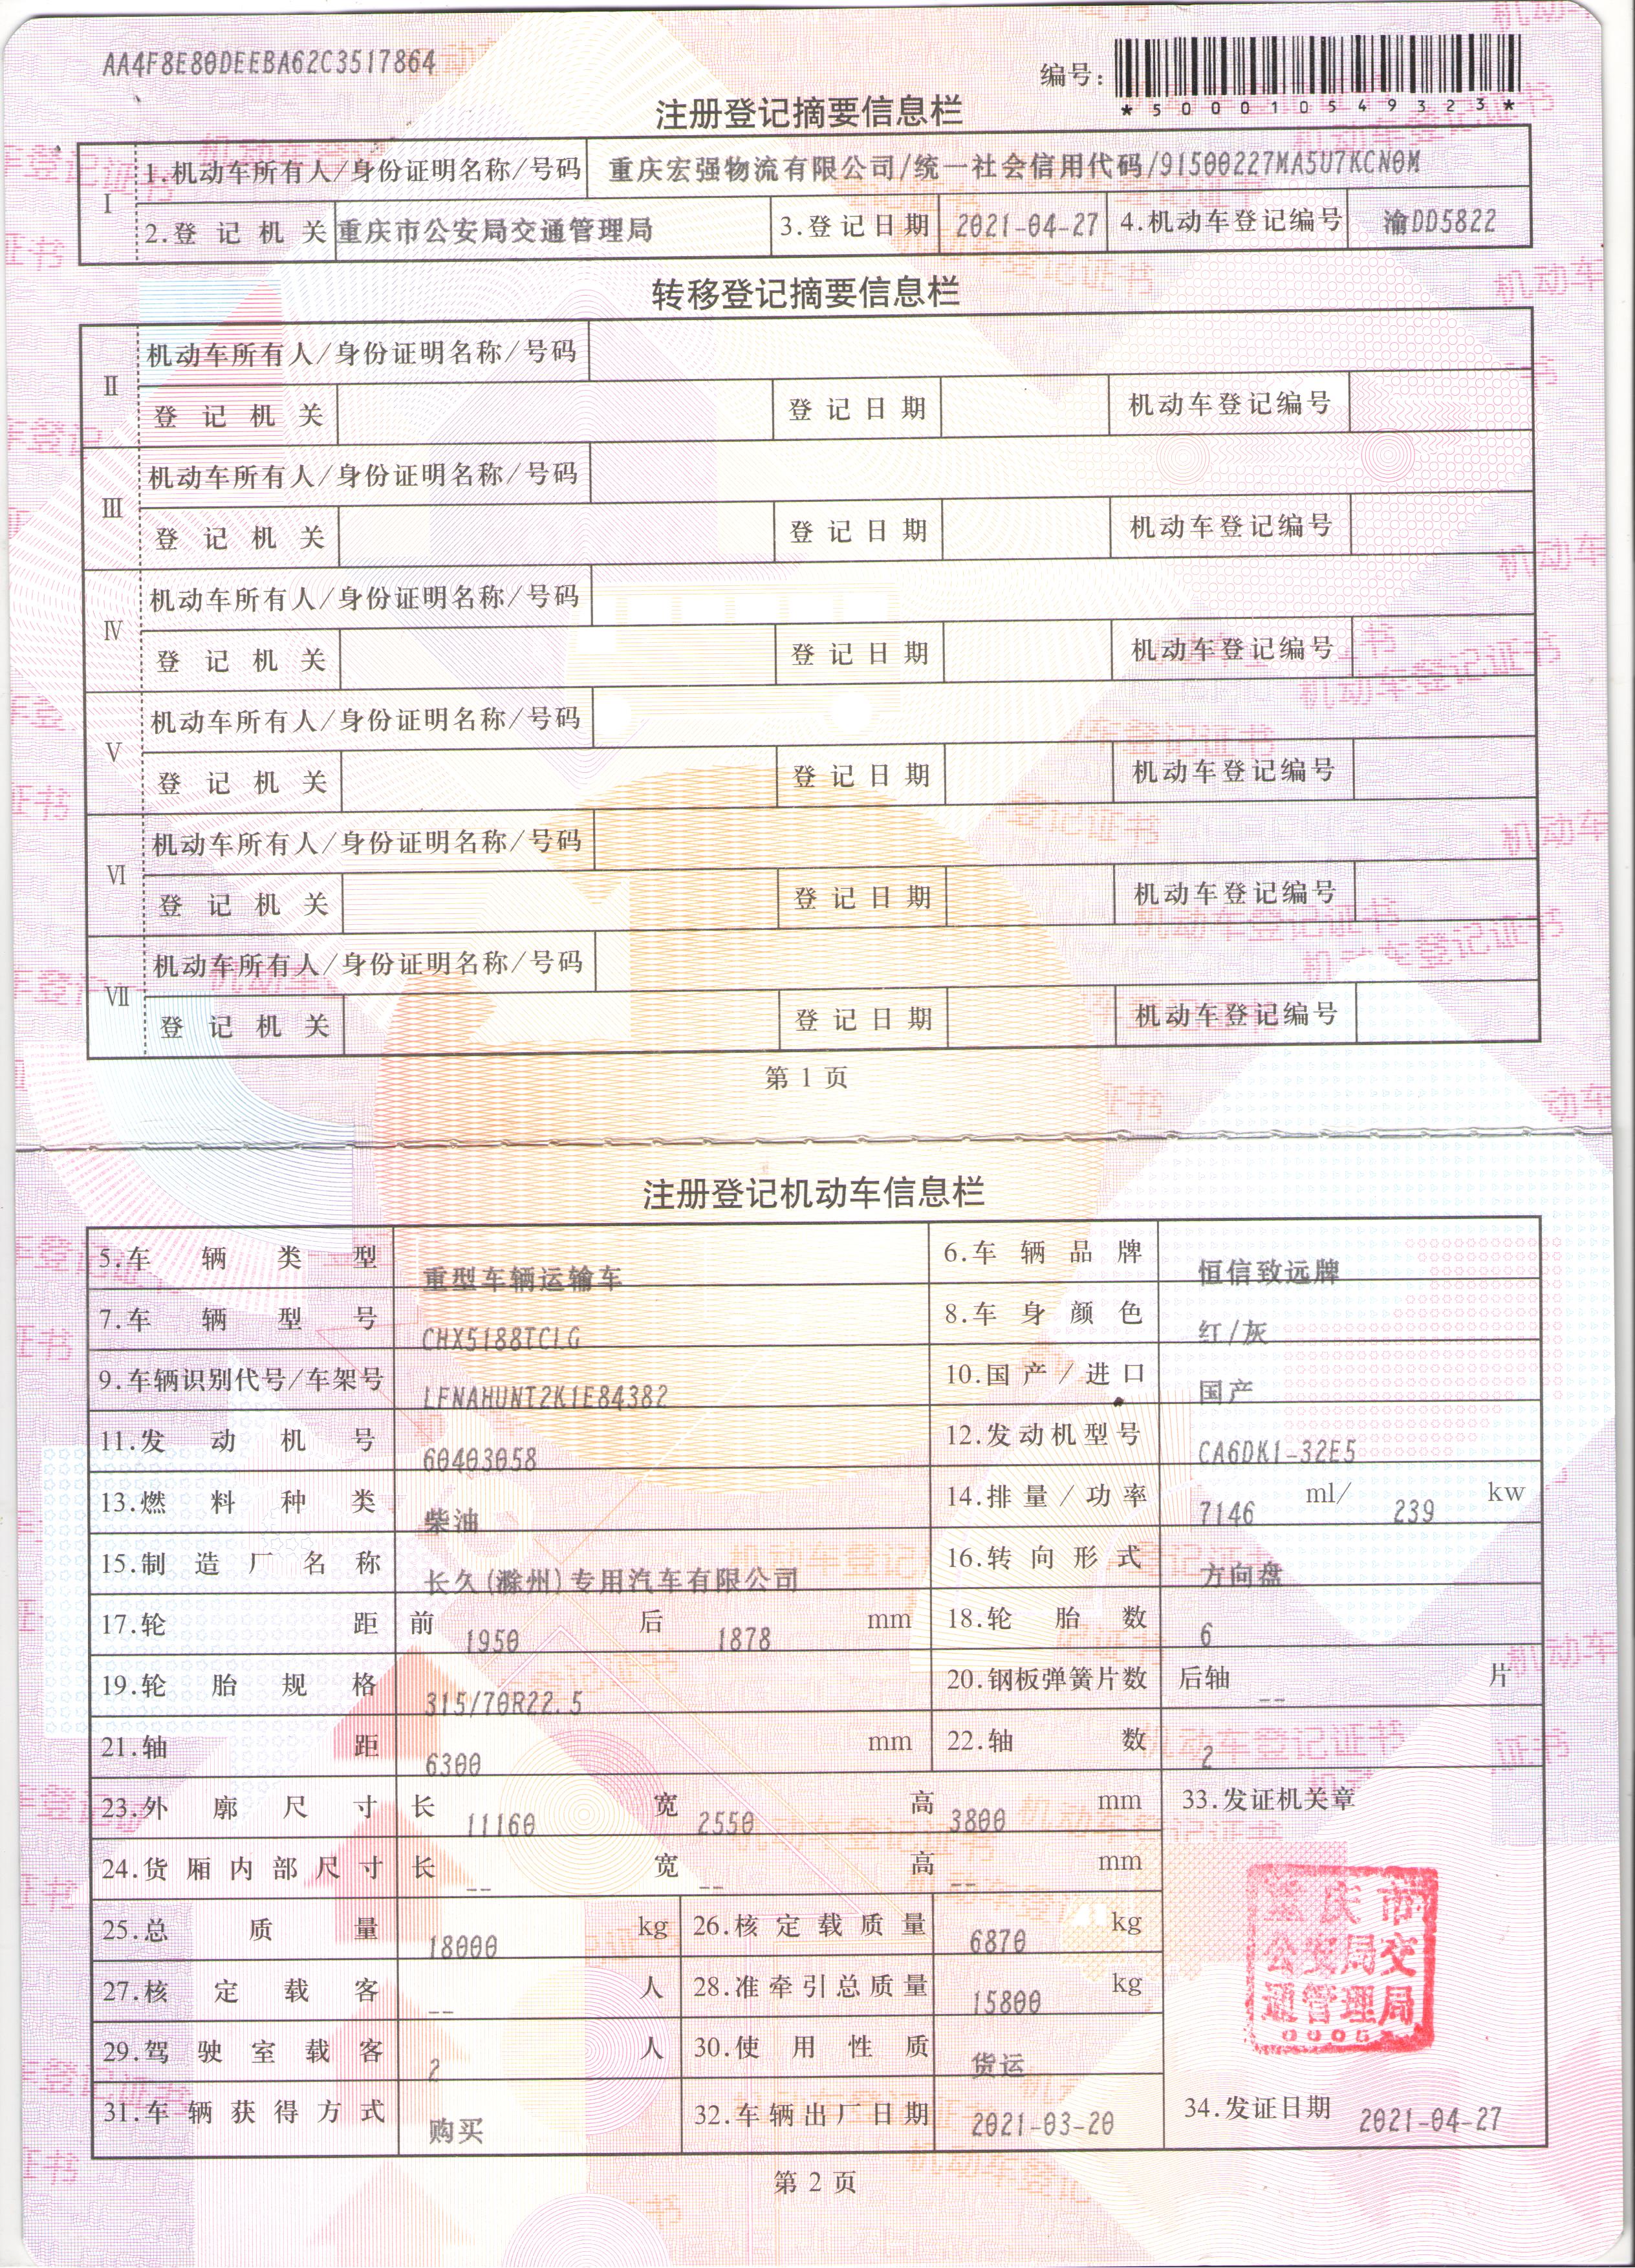 AA4F8E80DEEBA62C3517864
编号：
*500010549323*
注册登记摘要信息栏
I
1.机动车所有人/身份证明名称/号码 重庆宏强物流有限公司/统一社会信用代码/91500227MA5U7KCN0M
2.登记机关 重庆市公安局交通管理局 3.登记日期 2021-04-27 4.机动车登记编号 渝DD5822
转移登记摘要信息栏
II
机动车所有人/身份证明名称/号码
登记机关 登记日期 机动车登记编号
III
机动车所有人/身份证明名称/号码
登记机关 登记日期 机动车登记编号
IV
机动车所有人/身份证明名称/号码
登记机关 登记日期 机动车登记编号
V
机动车所有人/身份证明名称/号码
登记机关 登记日期 机动车登记编号
VI
机动车所有人/身份证明名称/号码
登记机关 登记日期 机动车登记编号
VII
机动车所有人/身份证明名称/号码
登记机关 登记日期 机动车登记编号
第 1 页
注册登记机动车信息栏
5.车辆类型 重型车辆运输车 6.车辆品牌 恒信致远牌
7.车辆型号 CHX5188TCLG 8.车身颜色 红/灰
9.车辆识别代号/车架号 LFNAHUNT2K1E84382 10.国产/进口 国产
11.发动机号 60403058 12.发动机型号 CA6DK1-32E5
13.燃料种类 柴油 14.排量/功率 7146 ml/ 239 kw
15.制造厂名称 长久(滁州)专用汽车有限公司 16.转向形式 方向盘
17.轮距 前 1950 后 1878 mm 18.轮胎数 6
19.轮胎规格 315/70R22.5 20.钢板弹簧片数 后轴 -- 片
21.轴距 6300 mm 22.轴数 2
23.外廓尺寸 长 11160 宽 2550 高 3800 mm 33.发证机关章
24.货厢内部尺寸 长 -- 宽 -- 高 -- mm
25.总质量 18000 kg 26.核定载质量 6870 kg
重庆市
公安局交
通管理局
27.核定载客 -- 人 28.准牵引总质量 15800 kg
29.驾驶室载客 2 人 30.使用性质 货运
31.车辆获得方式 购买 32.车辆出厂日期 2021-03-20 34.发证日期 2021-04-27
第 2 页